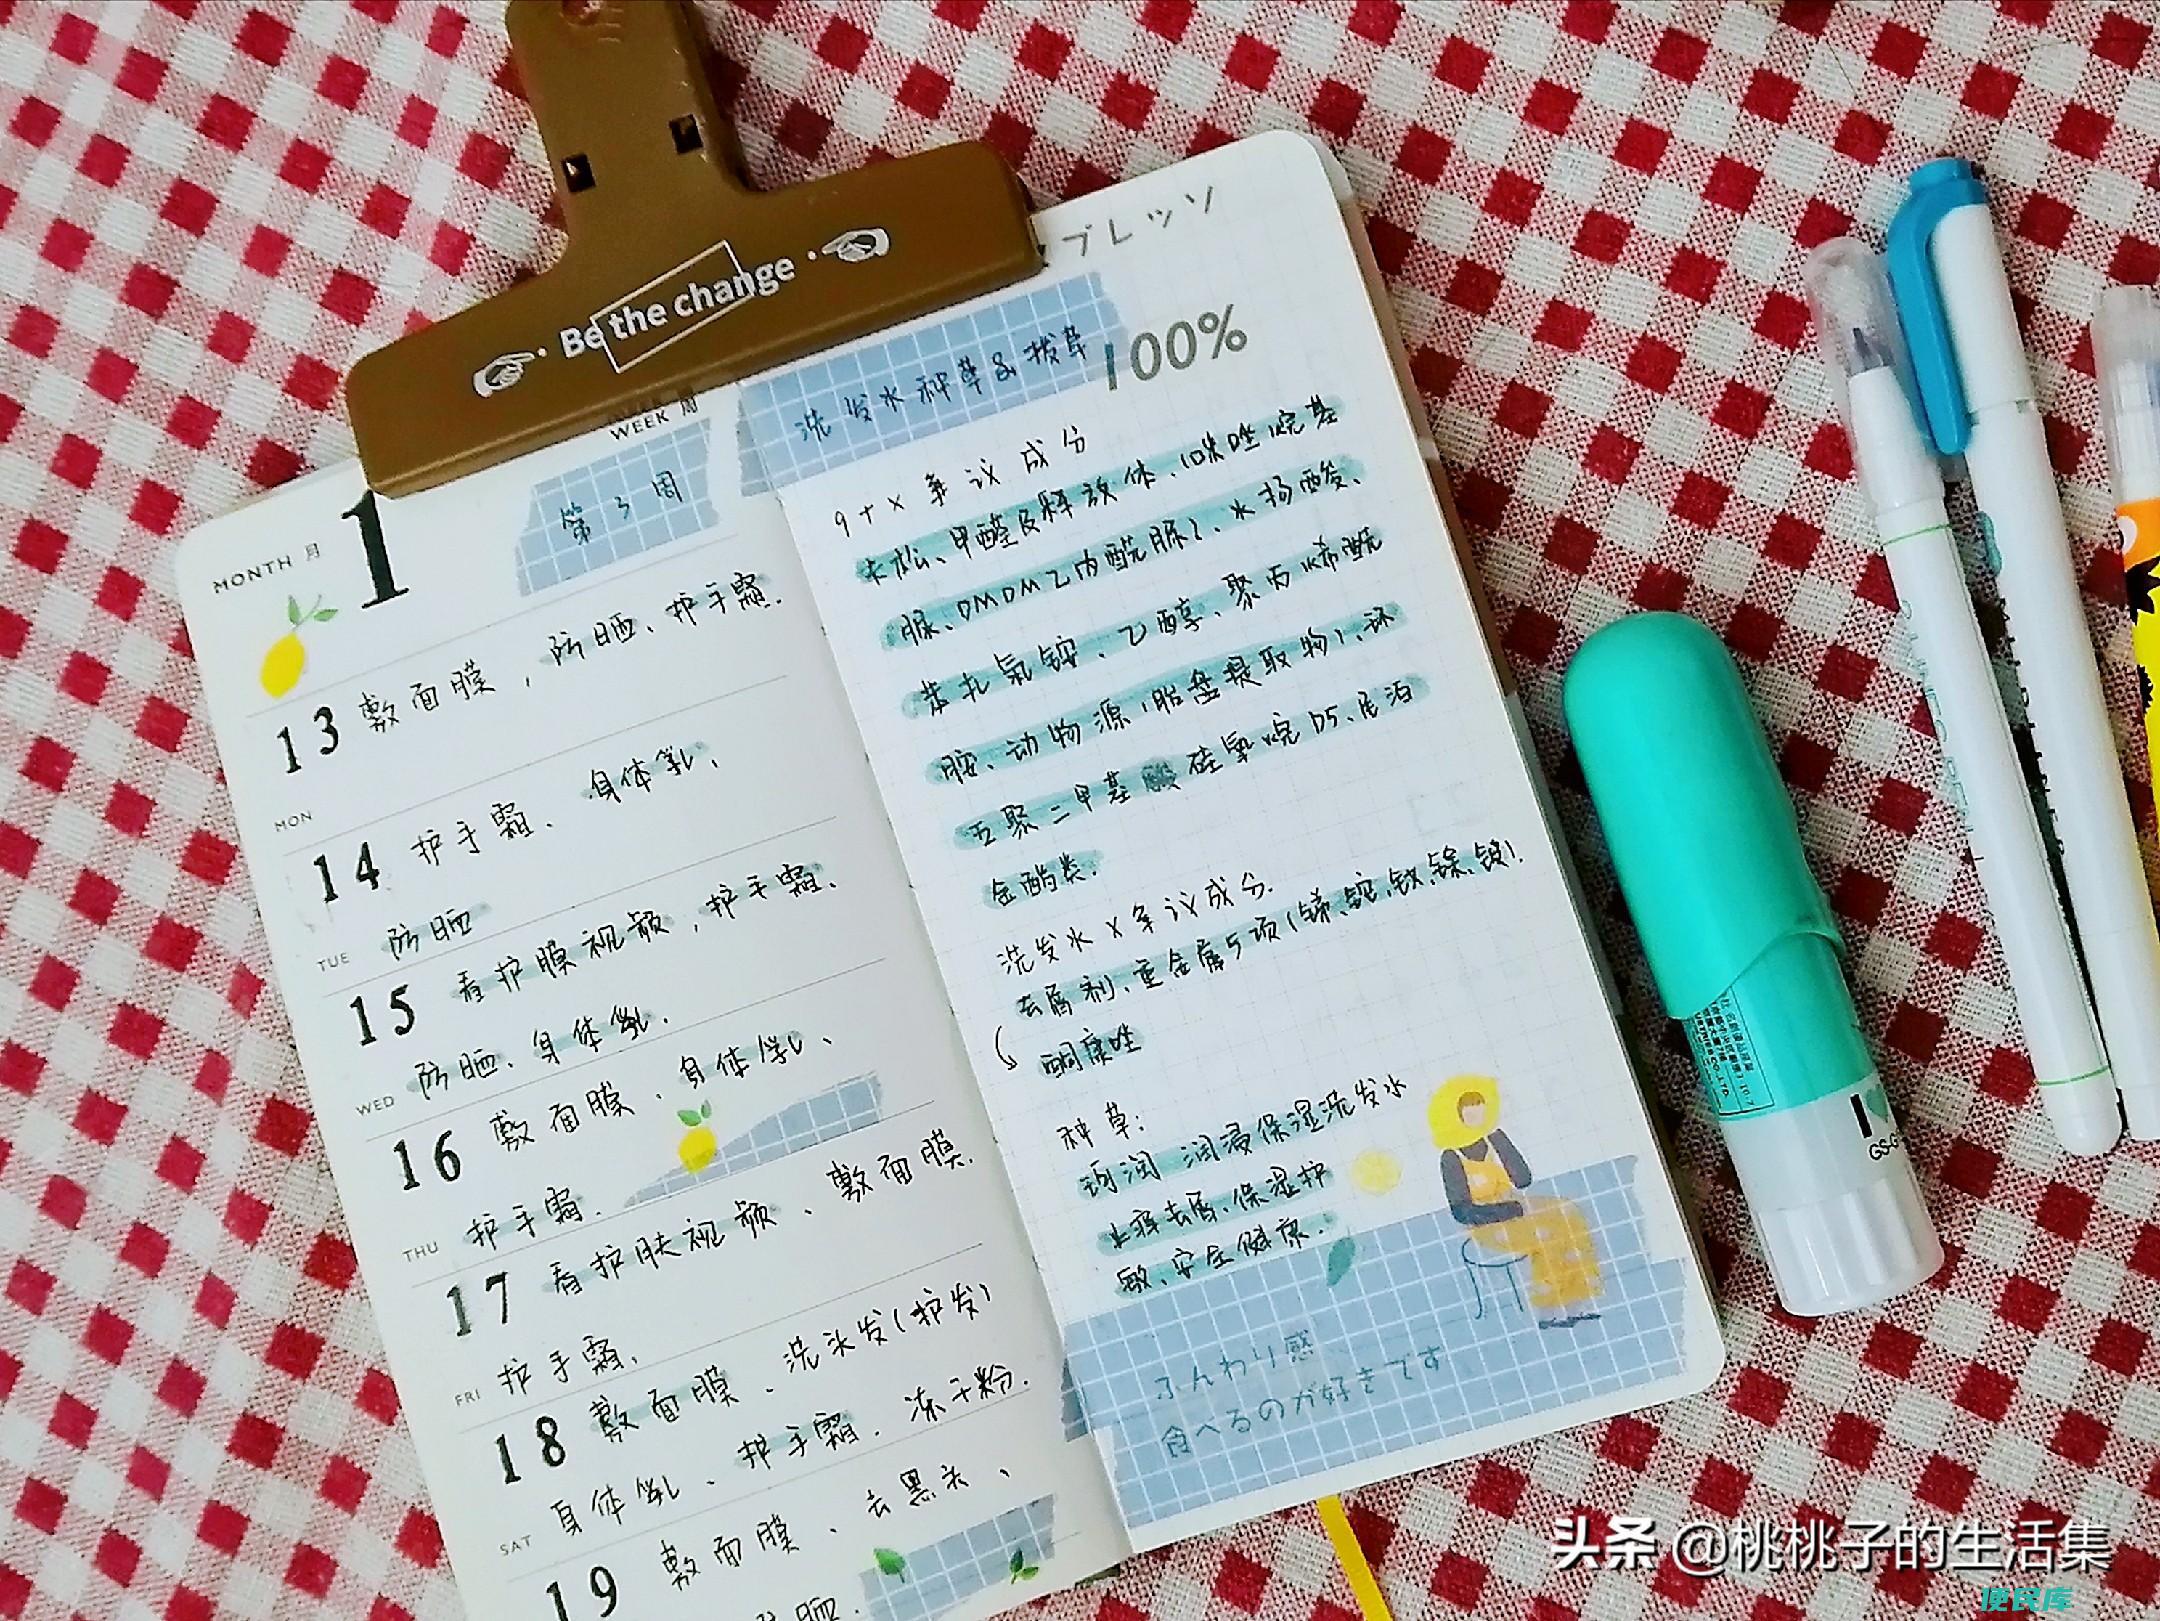 Be the change
WEEK 周
MONTH 月
1
第3周
13 敷面膜，防晒、护手霜.
MON
14 护手霜、身体乳、
防晒
TUE
15 看护膜视频，护手霜、
防晒、身体乳.
WED
16 敷面膜、身体乳、
护手霜.
THU
17 看护肤视频、敷面膜.
护手霜.
FRI
18 敷面膜、洗头发(护发)
身体乳、护手霜.冻干粉.
SAT
19 敷面膜、去黑头、
防晒.
ブレッソ
洗发水种草&拔草
100%
9+x争议成分
卡松、甲醛及释放体、(咪唑烷基
脲、DMDM乙内酰脲)、水杨酸、
苯扎氯铵、乙醇、聚丙烯酰
胺、动物源(胎盘提取物)、环
五聚二甲基硅氧烷D5、尼泊
金酯类.
洗发水x争议成分.
去屑剂、重金属5项(锑、铊、钕、镓、锁).
酮康唑
种草:
润 润浸保湿洗发水
止痒去屑、保湿护
敏、安全健康.
ふんわり感
食べるのが好きです
I
GS-G
头条 @桃桃子的生活集
便民库